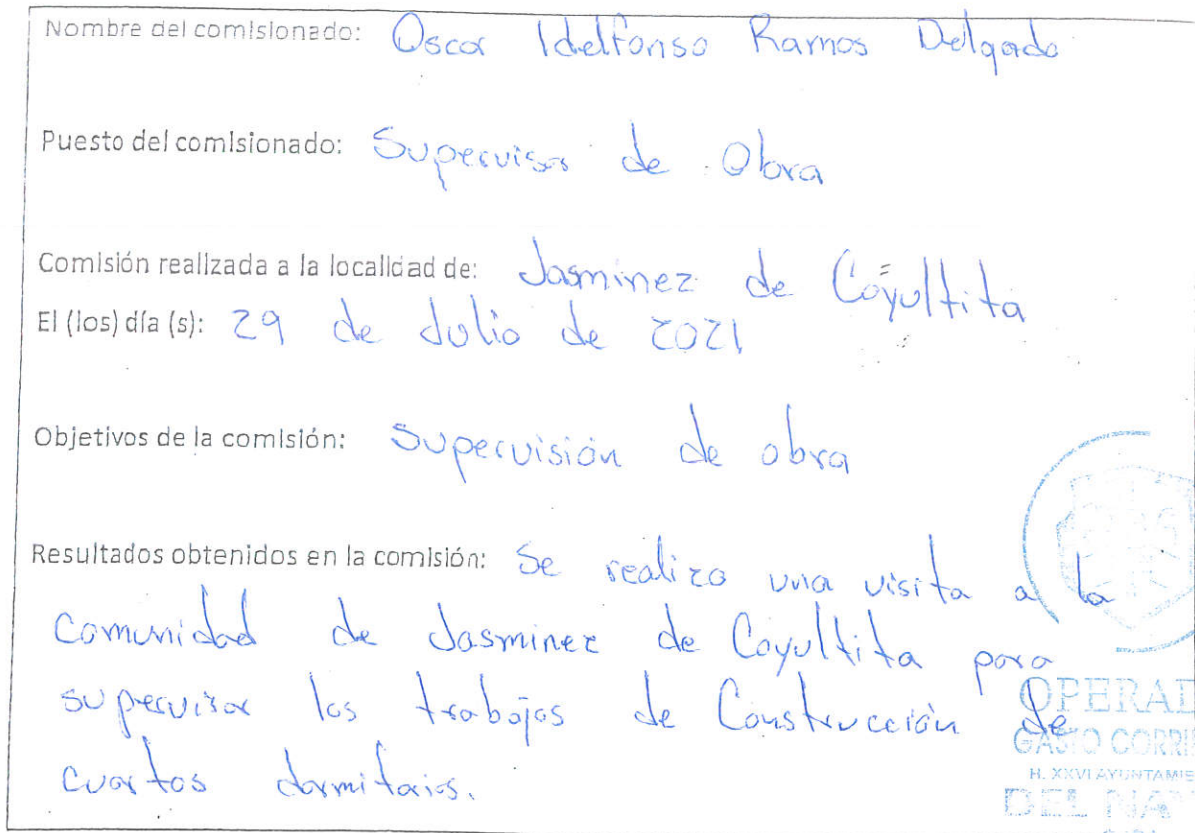 Nombre del comisionado: Oscar Idelfonso Ramos Delgado
Puesto del comisionado: Supervisor de Obra
Comisión realizada a la localidad de: Jasminez de Coyultita
El (los) día (s): 29 de Julio de 2021
Objetivos de la comisión: Supervisión de obra
Resultados obtenidos en la comisión: Se realizo una visita a la
comunidad de Jasminez de Coyultita para
supervisar los trabajos de Construcción de
cuartos dormitorios.
OPERAD
GASTO CORRI
H. XXVI AYUNTAMIE
DEL NA